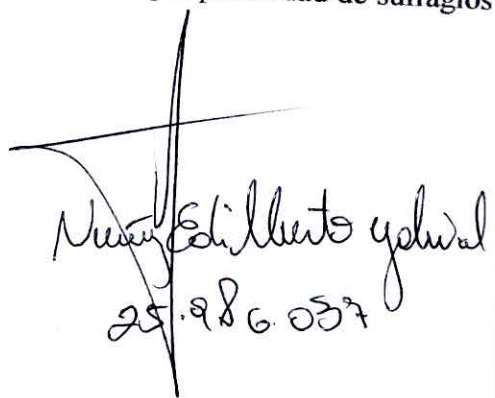 de sufragios
Nuñez Edilberto
25.986.037